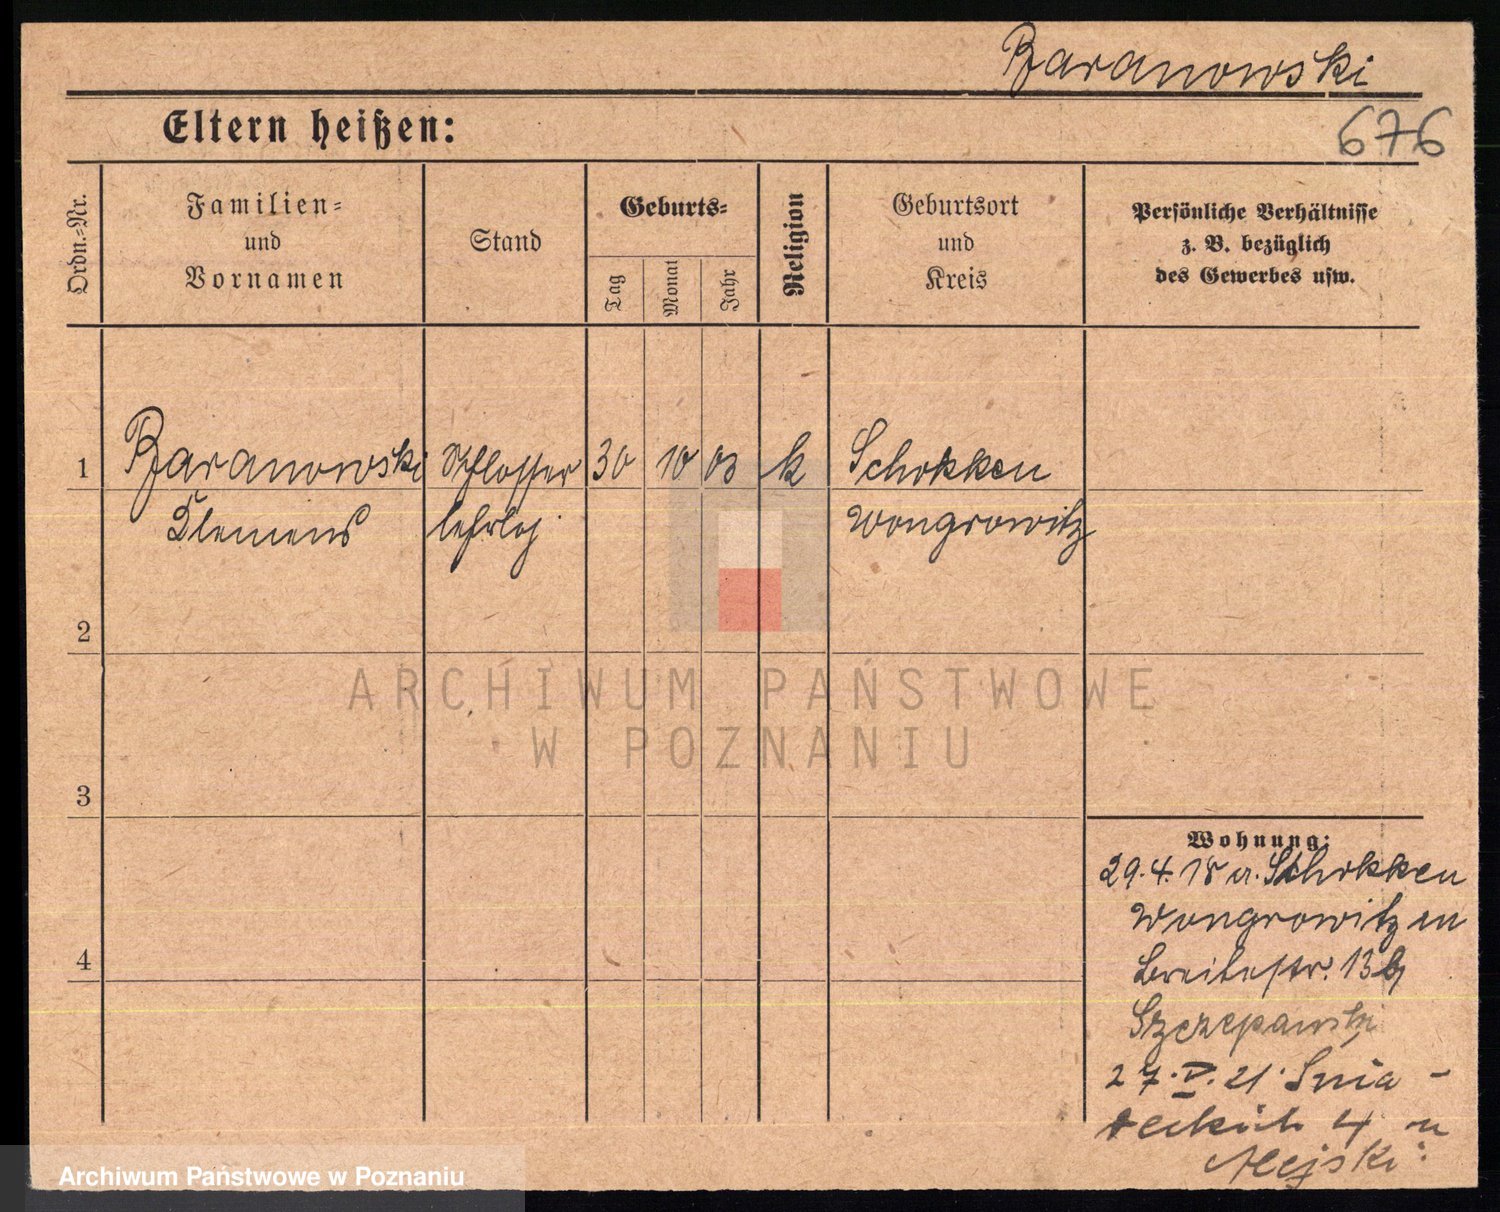 Baranowski
676
Eltern heißen:
Ordn.=Nr.
Familien=
und
Vornamen
Stand
Geburts=
Tag
Monat
Jahr
Religion
Geburtsort
und
Kreis
Persönliche Verhältnisse
z. B. bezüglich
des Gewerbes usw.
1
Baranowski Schlosser 30 10 03 k Schokken
Klemens lehrlg. Wongrowitz
2
ARCHIWUM PAŃSTWOWE
W POZNANIU
3
Wohnung:
29.4.18 v. Schokken
Wongrowitz
4
Breitestr. 13
27.V.21
4
Archiwum Państwowe w Poznaniu